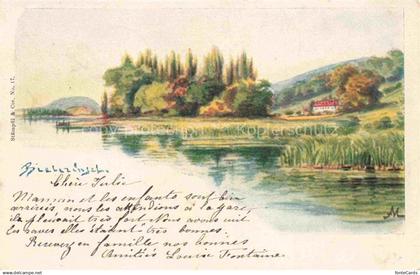 Stämpfli & Cie, No. 17.
Bielerinsel.
Chère Julie
Maman et les enfants sont bien
arrivés nous les attendions à la gare,
il pleuvait très fort. Nous avons cuit
les raves elles étaient très bonnes.
Recevez en famille nos bonnes
Amitiés Louise Fontaine.